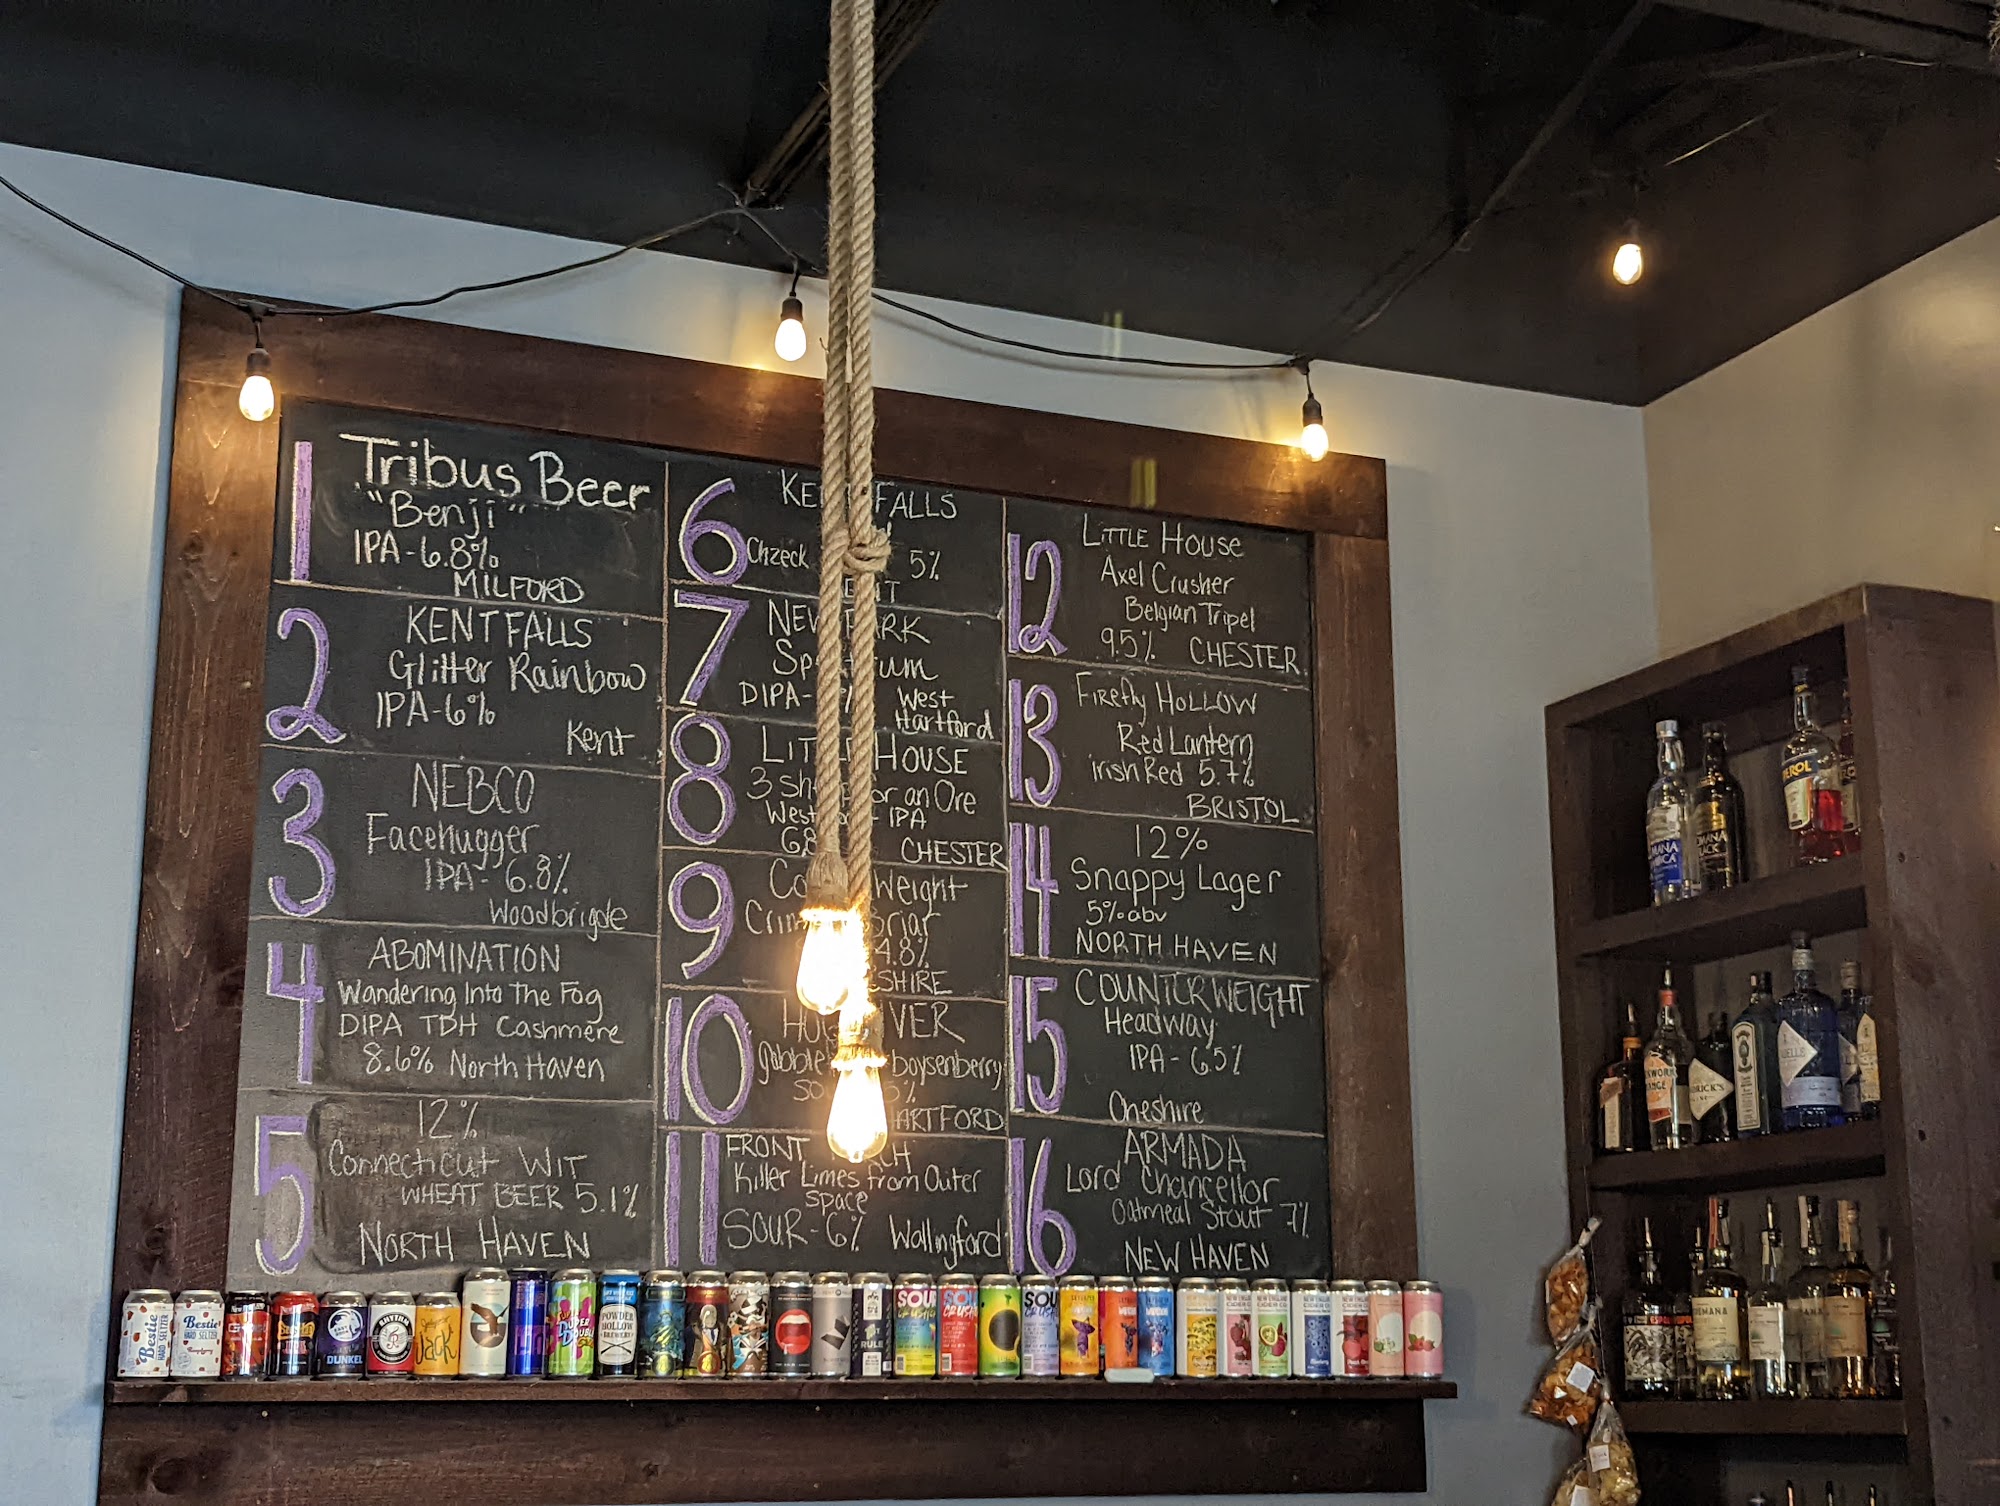 1
Tribus Beer
"Benji"
IPA-6.8%
MILFORD
2
KENT FALLS
Glitter Rainbow
IPA-6%
Kent
3
NEBCO
Facehugger
IPA- 6.8%
Woodbrigde
4
ABOMINATION
Wandering Into The Fog
DIPA TDH Cashmere
8.6% North Haven
5
12%
Connecticut WIT
WHEAT BEER 5.1%
NORTH HAVEN
6
KE FALLS
Chzeck 5%
7
NEW PARK
Sp um
DIPA- % West
Hartford
8
LITTLE HOUSE
3 Sh or an Ore
West IPA
6.8 CHESTER
9
Co weight
Crim Briar
4.8%
SHIRE
10
HO VER
gobble boysenberry
SO 5%
HARTFORD
11
FRONT CH
Killer Limes from Outer
space
SOUR-6% Wallingford
12
LITTLE HOUSE
Axel Crusher
Belgian Tripel
9.5% CHESTER
13
Firefly HOLLOW
Red Lantern
irish Red 5.7%
BRISTOL
14
12%
Snappy Lager
5% abv
NORTH HAVEN
15
COUNTER WEIGHT
Headway
IPA- 6.5%
Cheshire
16
ARMADA
Lord Chancellor
Oatmeal Stout 7%
NEW HAVEN
Bestie
HARD SELTZER
Bestie
HARD SELTZER
DUNKEL
RHYTHM
Jack
POWDER
HOLLOW
BREWERY
RULE
SOUR
CRUSH
SOUR
CRUSH